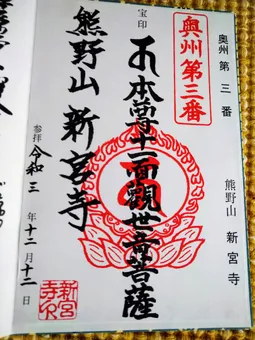 奥州第三番
熊野山 新宮寺
奥州第三番
宝印
本尊十一面観世音菩薩
熊野山 新宮寺
参拝 令和三年十二月十二日
新宮寺印